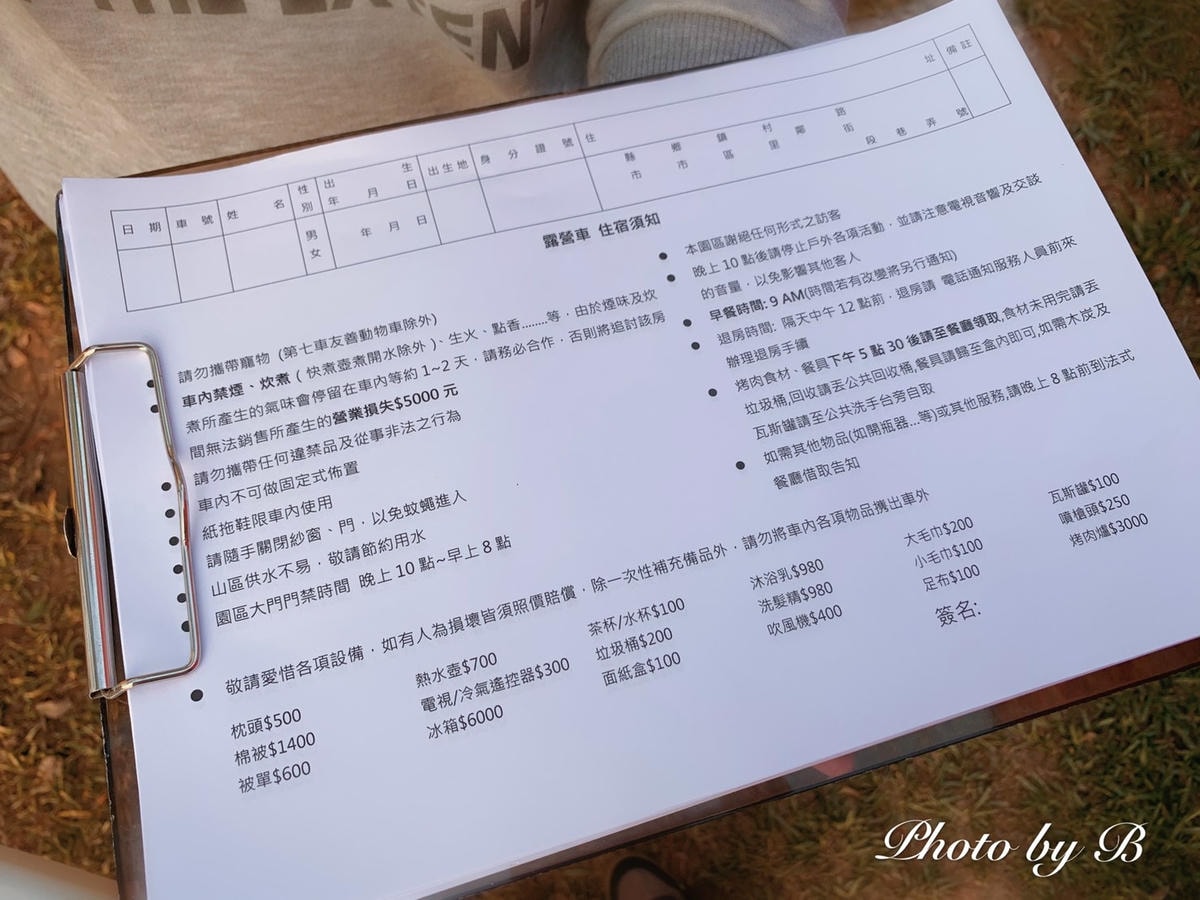 THE EXTENT
日期 車號 姓名 性別 出生年月日 出生地 身分證號 住址 備註
男 女 年 月 日 縣市 鄉鎮市區 村里 鄰 路街 段 巷 弄 號
露營車 住宿須知
請勿攜帶寵物 (第七車友善動物車除外)
車內禁煙、炊煮 ( 快煮壺煮開水除外 )、生火、點香........等，由於煙味及炊
煮所產生的氣味會停留在車內等約 1~2 天，請務必合作，否則將追討該房
間無法銷售所產生的營業損失$5000 元
請勿攜帶任何違禁品及從事非法之行為
車內不可做固定式佈置
紙拖鞋限車內使用
請隨手關閉紗窗、門，以免蚊蠅進入
山區供水不易，敬請節約用水
園區大門門禁時間 晚上 10 點~早上 8 點
本園區謝絕任何形式之訪客
晚上 10 點後請停止戶外各項活動，並請注意電視音響及交談
的音量，以免影響其他客人
早餐時間: 9 AM(時間若有改變將另行通知)
退房時間: 隔天中午 12 點前，退房請 電話通知服務人員前來
辦理退房手續
烤肉食材、餐具下午 5 點 30 後請至餐廳領取,食材未用完請丟
垃圾桶,回收請丟公共回收桶,餐具請歸至盒內即可,如需木炭及
瓦斯罐請至公共洗手台旁自取
如需其他物品(如開瓶器...等)或其他服務,請晚上 8 點前到法式
餐廳借取告知
敬請愛惜各項設備，如有人為損壞皆須照價賠償，除一次性補充備品外，請勿將車內各項物品攜出車外
枕頭$500
棉被$1400
被單$600
熱水壺$700
電視/冷氣遙控器$300
冰箱$6000
茶杯/水杯$100
垃圾桶$200
面紙盒$100
沐浴乳$980
洗髮精$980
吹風機$400
大毛巾$200
小毛巾$100
足布$100
瓦斯罐$100
噴槍頭$250
烤肉爐$3000
簽名:
Photo by B